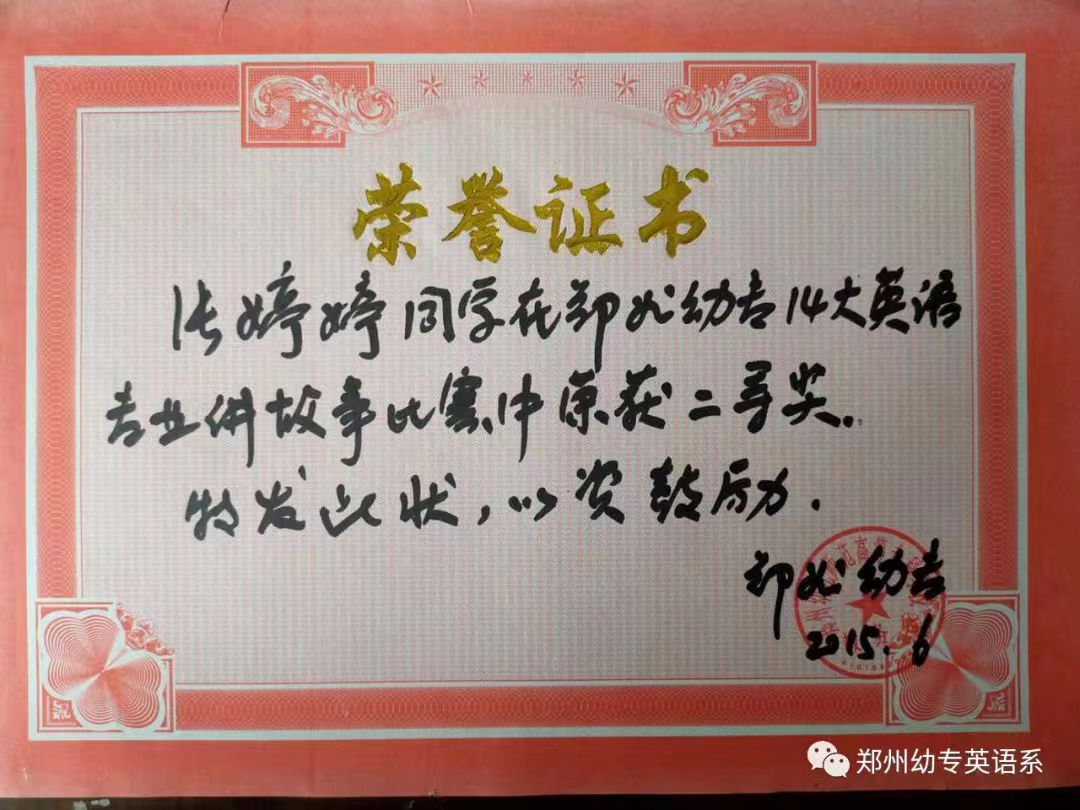 荣誉证书
张婷婷同学在郑州幼专14大英语
专业讲故事比赛中荣获二等奖.
特发此状,以资鼓励.
郑州幼专
2015.6
郑州幼专英语系